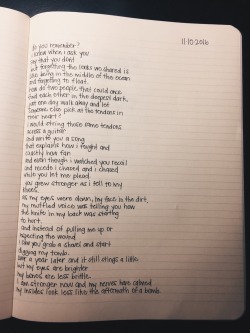 11·10·2016
do you remember?
i know when i ask you
say that you don't
but forgetting the looks we shared is
like being in the middle of the ocean
and forgetting to float.
how do two people that could once
find each other in the deepest dark,
just one day walk away and let
someone else pick at the tendons in
their heart?
i would string those same tendons
across a guitar
and write you a song
that explains how i fought and
quietly how i ran
and even though i watched you recoil
and recede i chased and i chased
while you let me plead.
you grew stronger as i fell to my
knees,
as my eyes were down, my face in the dirt,
my muffled voice was telling you how
the knife in my back was starting
to hurt.
and instead of pulling me up or
inspecting the wound
i saw you grab a shovel and start
digging my tomb.
over a year later and it still stings a little
but my eyes are brighter
my bones are less brittle.
i am stronger now and my nerves have calmed
my insides look less like the aftermath of a bomb.